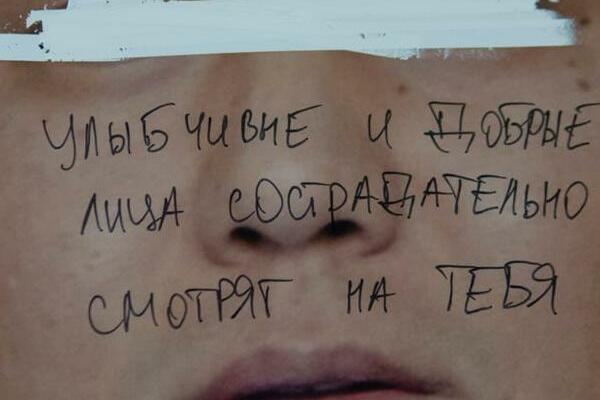 УЛЫБЧИВЫЕ И ДОБРЫЕ
ЛИЦА СОСТРАДАТЕЛЬНО
СМОТРЯТ НА ТЕБЯ